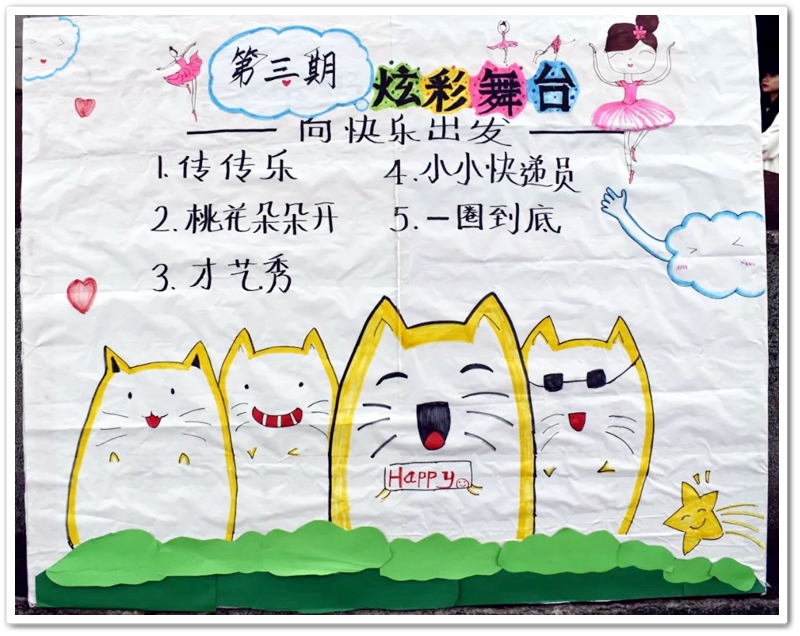 第三期 炫彩舞台
向快乐出发
1.传传乐
2.桃花朵朵开
3.才艺秀
4.小小快递员
5.一圈到底
Happy